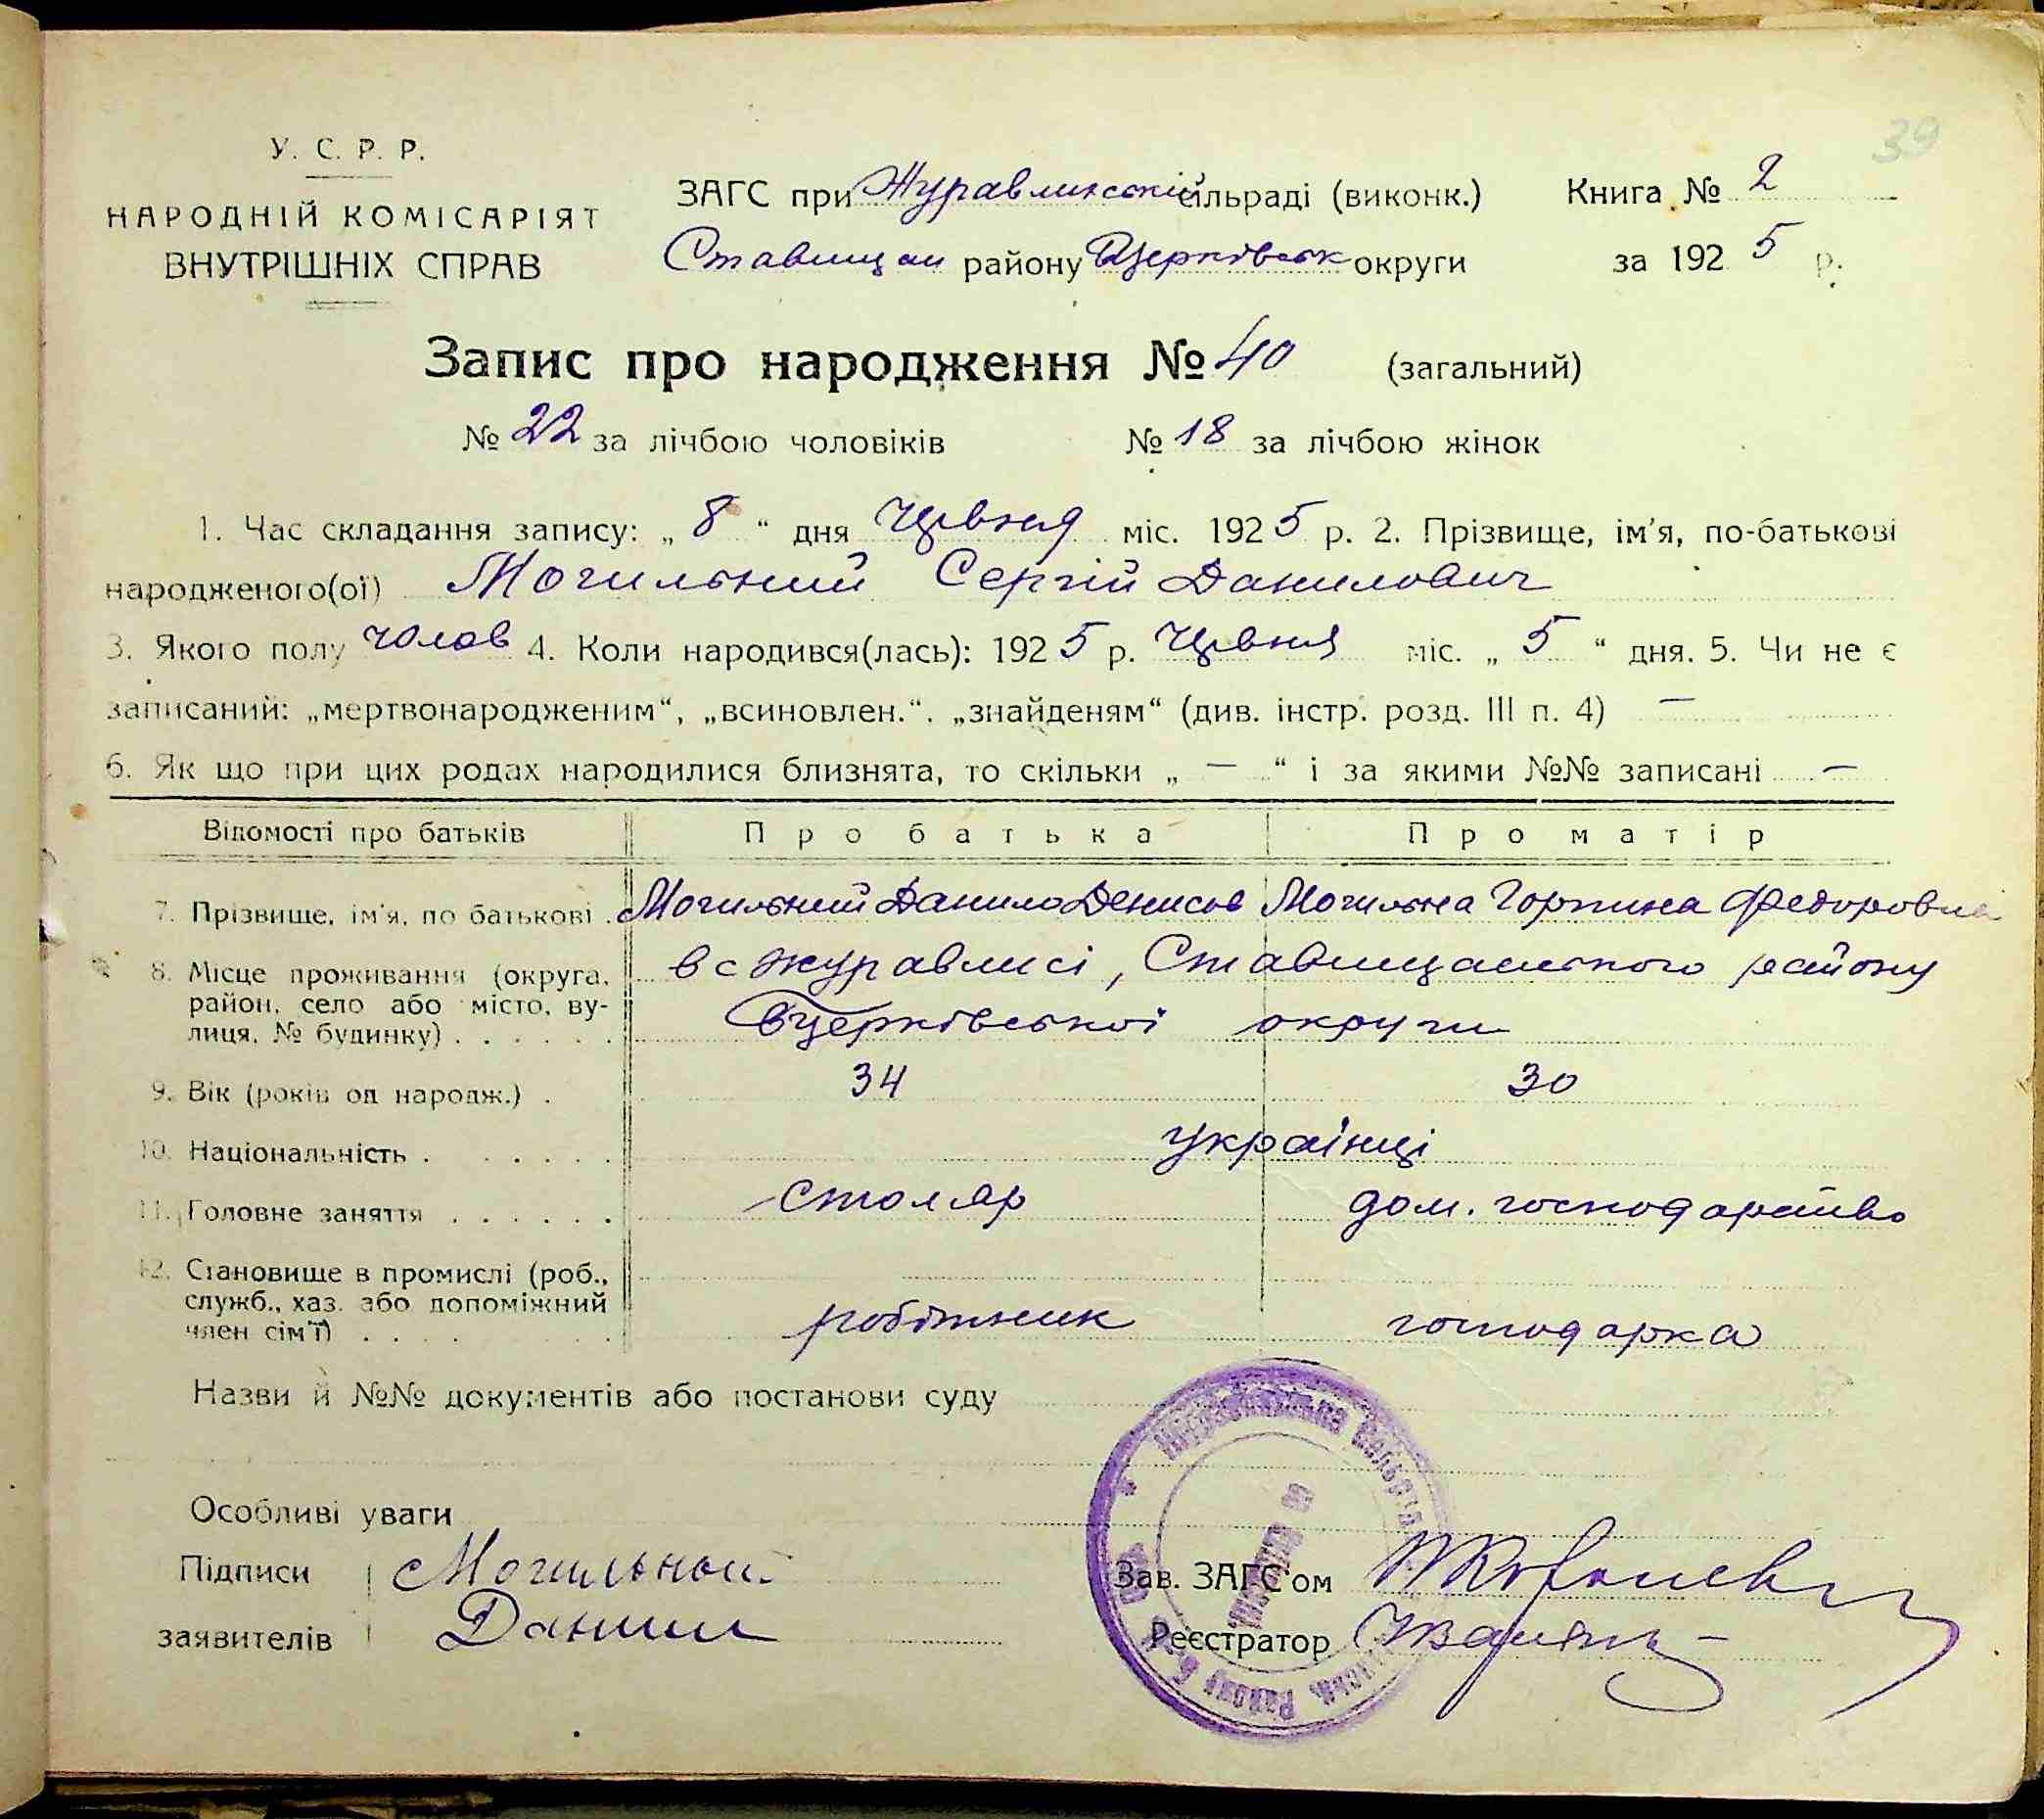 39
У. С. Р. Р.
НАРОДНІЙ КОМІСАРІЯТ
ВНУТРІШНІХ СПРАВ
ЗАГС при Журавлиській сільраді (виконк.) Книга № 2
Ставищан району БЦерківськ округи за 1925 р.
Запис про народження № 40 (загальний)
№ 22 за лічбою чоловіків № 18 за лічбою жінок
1. Час складання запису: „ 8 “ дня червня міс. 1925 р. 2. Прізвище, ім'я, по-батькові
народженого(ої) Могильний Сергій Данилович
3. Якого полу чолов 4. Коли народився(лась): 1925 р. червня міс. „ 5 “ дня. 5. Чи не є
записаний: „мертвонародженим“, „всиновлен.“. „знайденям“ (див. інстр. розд. III п. 4) —
6. Як що при цих родах народилися близнята, то скільки „ — “ і за якими №№ записані —
Відомості про батьків Про батька Про матір
7. Прізвище, ім'я, по батькові . Могильний Данило Денисов Могильна Горпина Федоровна
8. Місце проживання (округа, в с Журавлисі, Ставищанського району
район, село або місто, ву-
лиця, № будинку) . . . . . . БЦерківської округи
9. Вік (років од народж.) . 34 30
10. Національність . . . . . . українці
11. Головне заняття . . . . . . столяр дом. господарство
12. Становище в промислі (роб.,
служб., хаз. або допоміжний
член сім'ї) . . . . робітник господарка
Назви й №№ документів або постанови суду
Особливі уваги
Підписи Могильний
заявителів Данил
Зав. ЗАГС'ом
Реєстратор